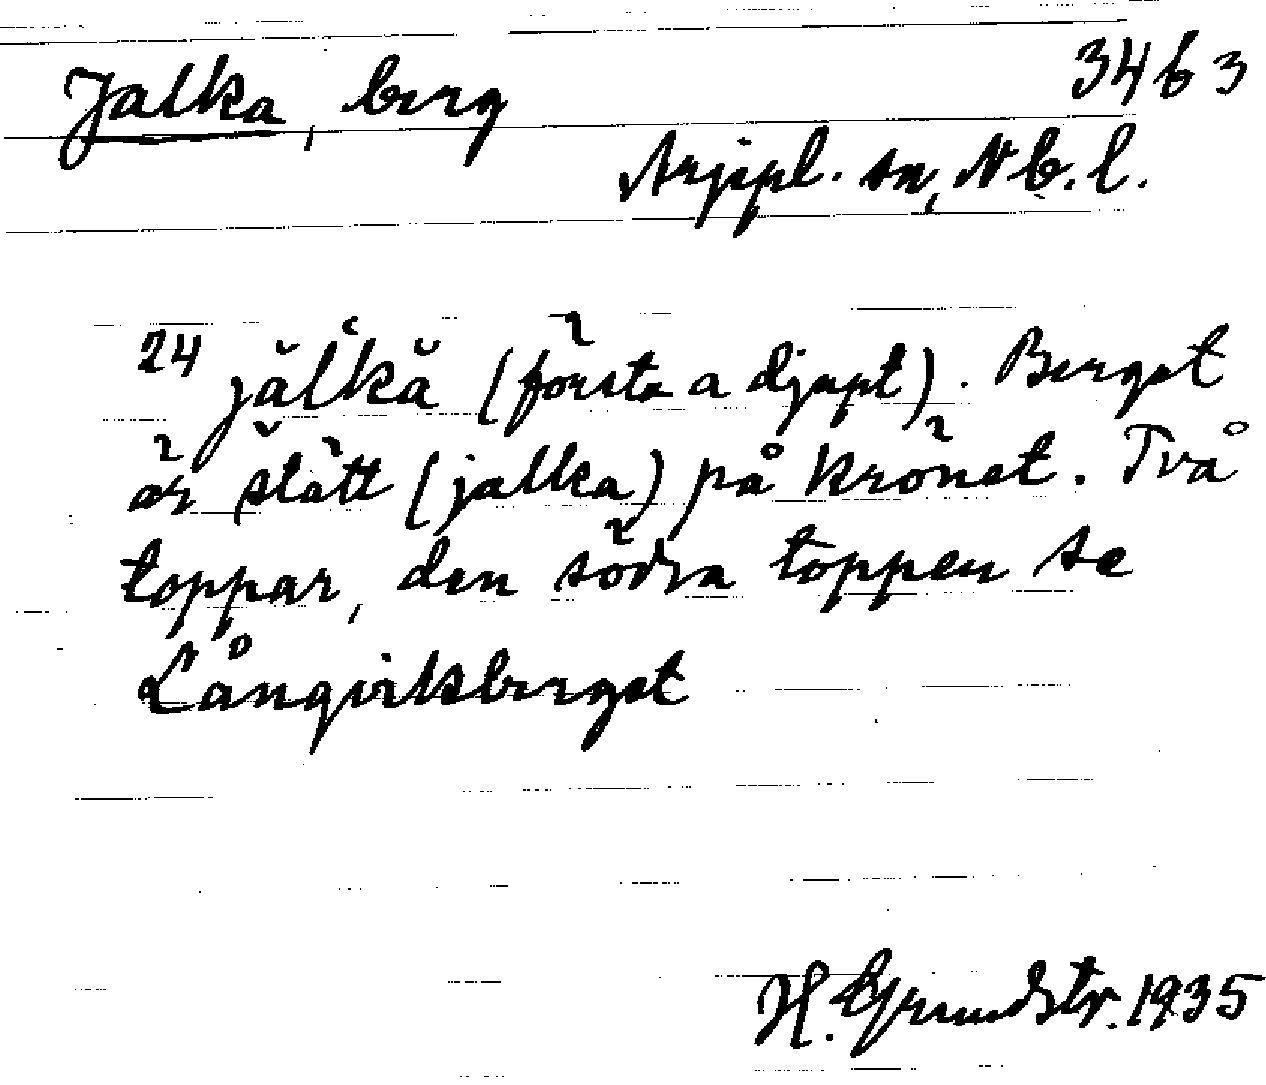 Jalka, berg 3463
Arjepl. sn, Nb. l.
24 jălʻkă (första a djupt). Berget
är slätt (jalka) på krönet. Två
toppar, den södra toppen se
Långviksberget
H. Grundstr. 1935